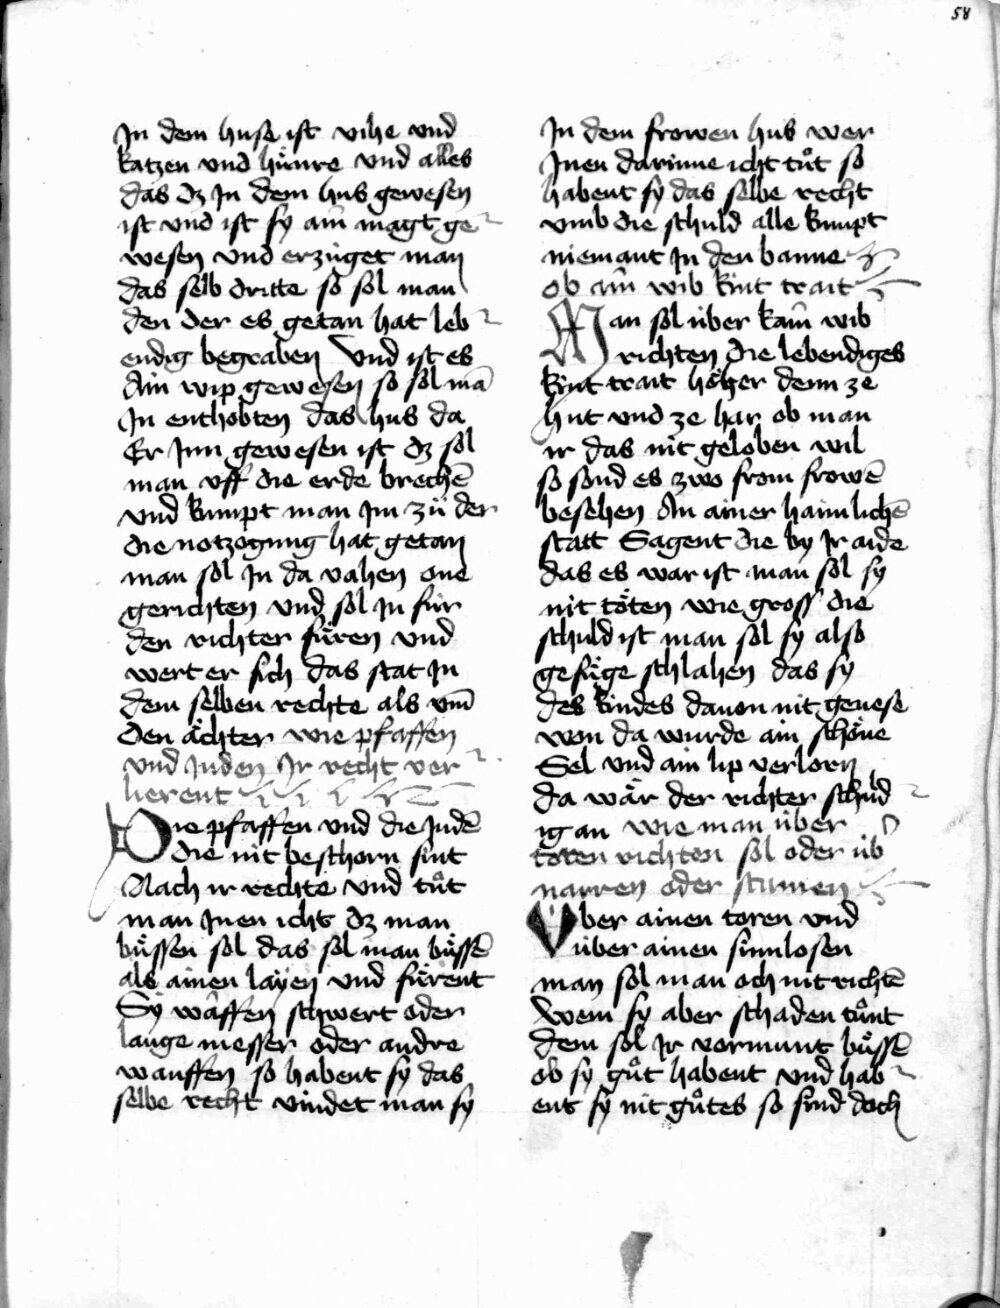 58
In dem huse ist vihe vnd
katzen vnd hu̇nre vnd alles
das dz In dem hus gewesen
ist vnd ist sy ain magt ge
wesen vnd erzuget man
das selb dritte so sol man
den der es getan hat leb
endig begraben Vnd ist es
Ain wip gewesen so sol mā
In enthobten das hus da
Er Inn gewesen ist dz sol
man vff die erde brechē
vnd kumpt man Im zů der
die notzogung hat getan
man sol In da vahen one
gerichten vnd sol In für
den richter fu̇ren vnd
wert er sich das stat In
dem selben rechte als vm̄
den ächter wie pfaffen
vnd Juden Ir recht ver
lierent
Die pfaffen vnd die Judē
die nit beschorn sint
Nach ir rechte vnd tůt
man Inen icht dz man
bu̇ssen sol das sol man bu̇ssē
als ainen layen vnd fu̇rent
Sy wâffen schwert oder
lange messer oder andre
wauffen so habent sy das
selbe recht vindet man sy
In dem frowen hus wer
Inen darinne icht tůt so
habent sy das selbe recht
vmb die schuld alle kumpt
niemant In den banne
ob ain wib kint trait
Man sol über kain wib
richten die lebendiges
kint trait höher denn ze
hut vnd ze har ob man
ir das nit geloben wil
so sond es zwo from frowē
besehen An ainer haimlichē
statt Sagent die by Ir aide
das es war ist man sol sy
nit töten wie gross die
schuld ist man sol sy also
gefu̇ge schlahen das sy
des kindes dauon nit genese
won da wurde ain schöne
Sel vnd ain lip verlorn
da wär der richter schuld
ig an wie man über
toren richten sol oder üb
narren oder stumen
Vber ainen toren vnd
über ainen sinnlosen
man sol man och nit richtē
Wem sy aber schaden tůnt
dem sol Ir vormunt bu̇ssē
ob sy gůt habent vnd hab
ent sy nit gůtes so sind doch